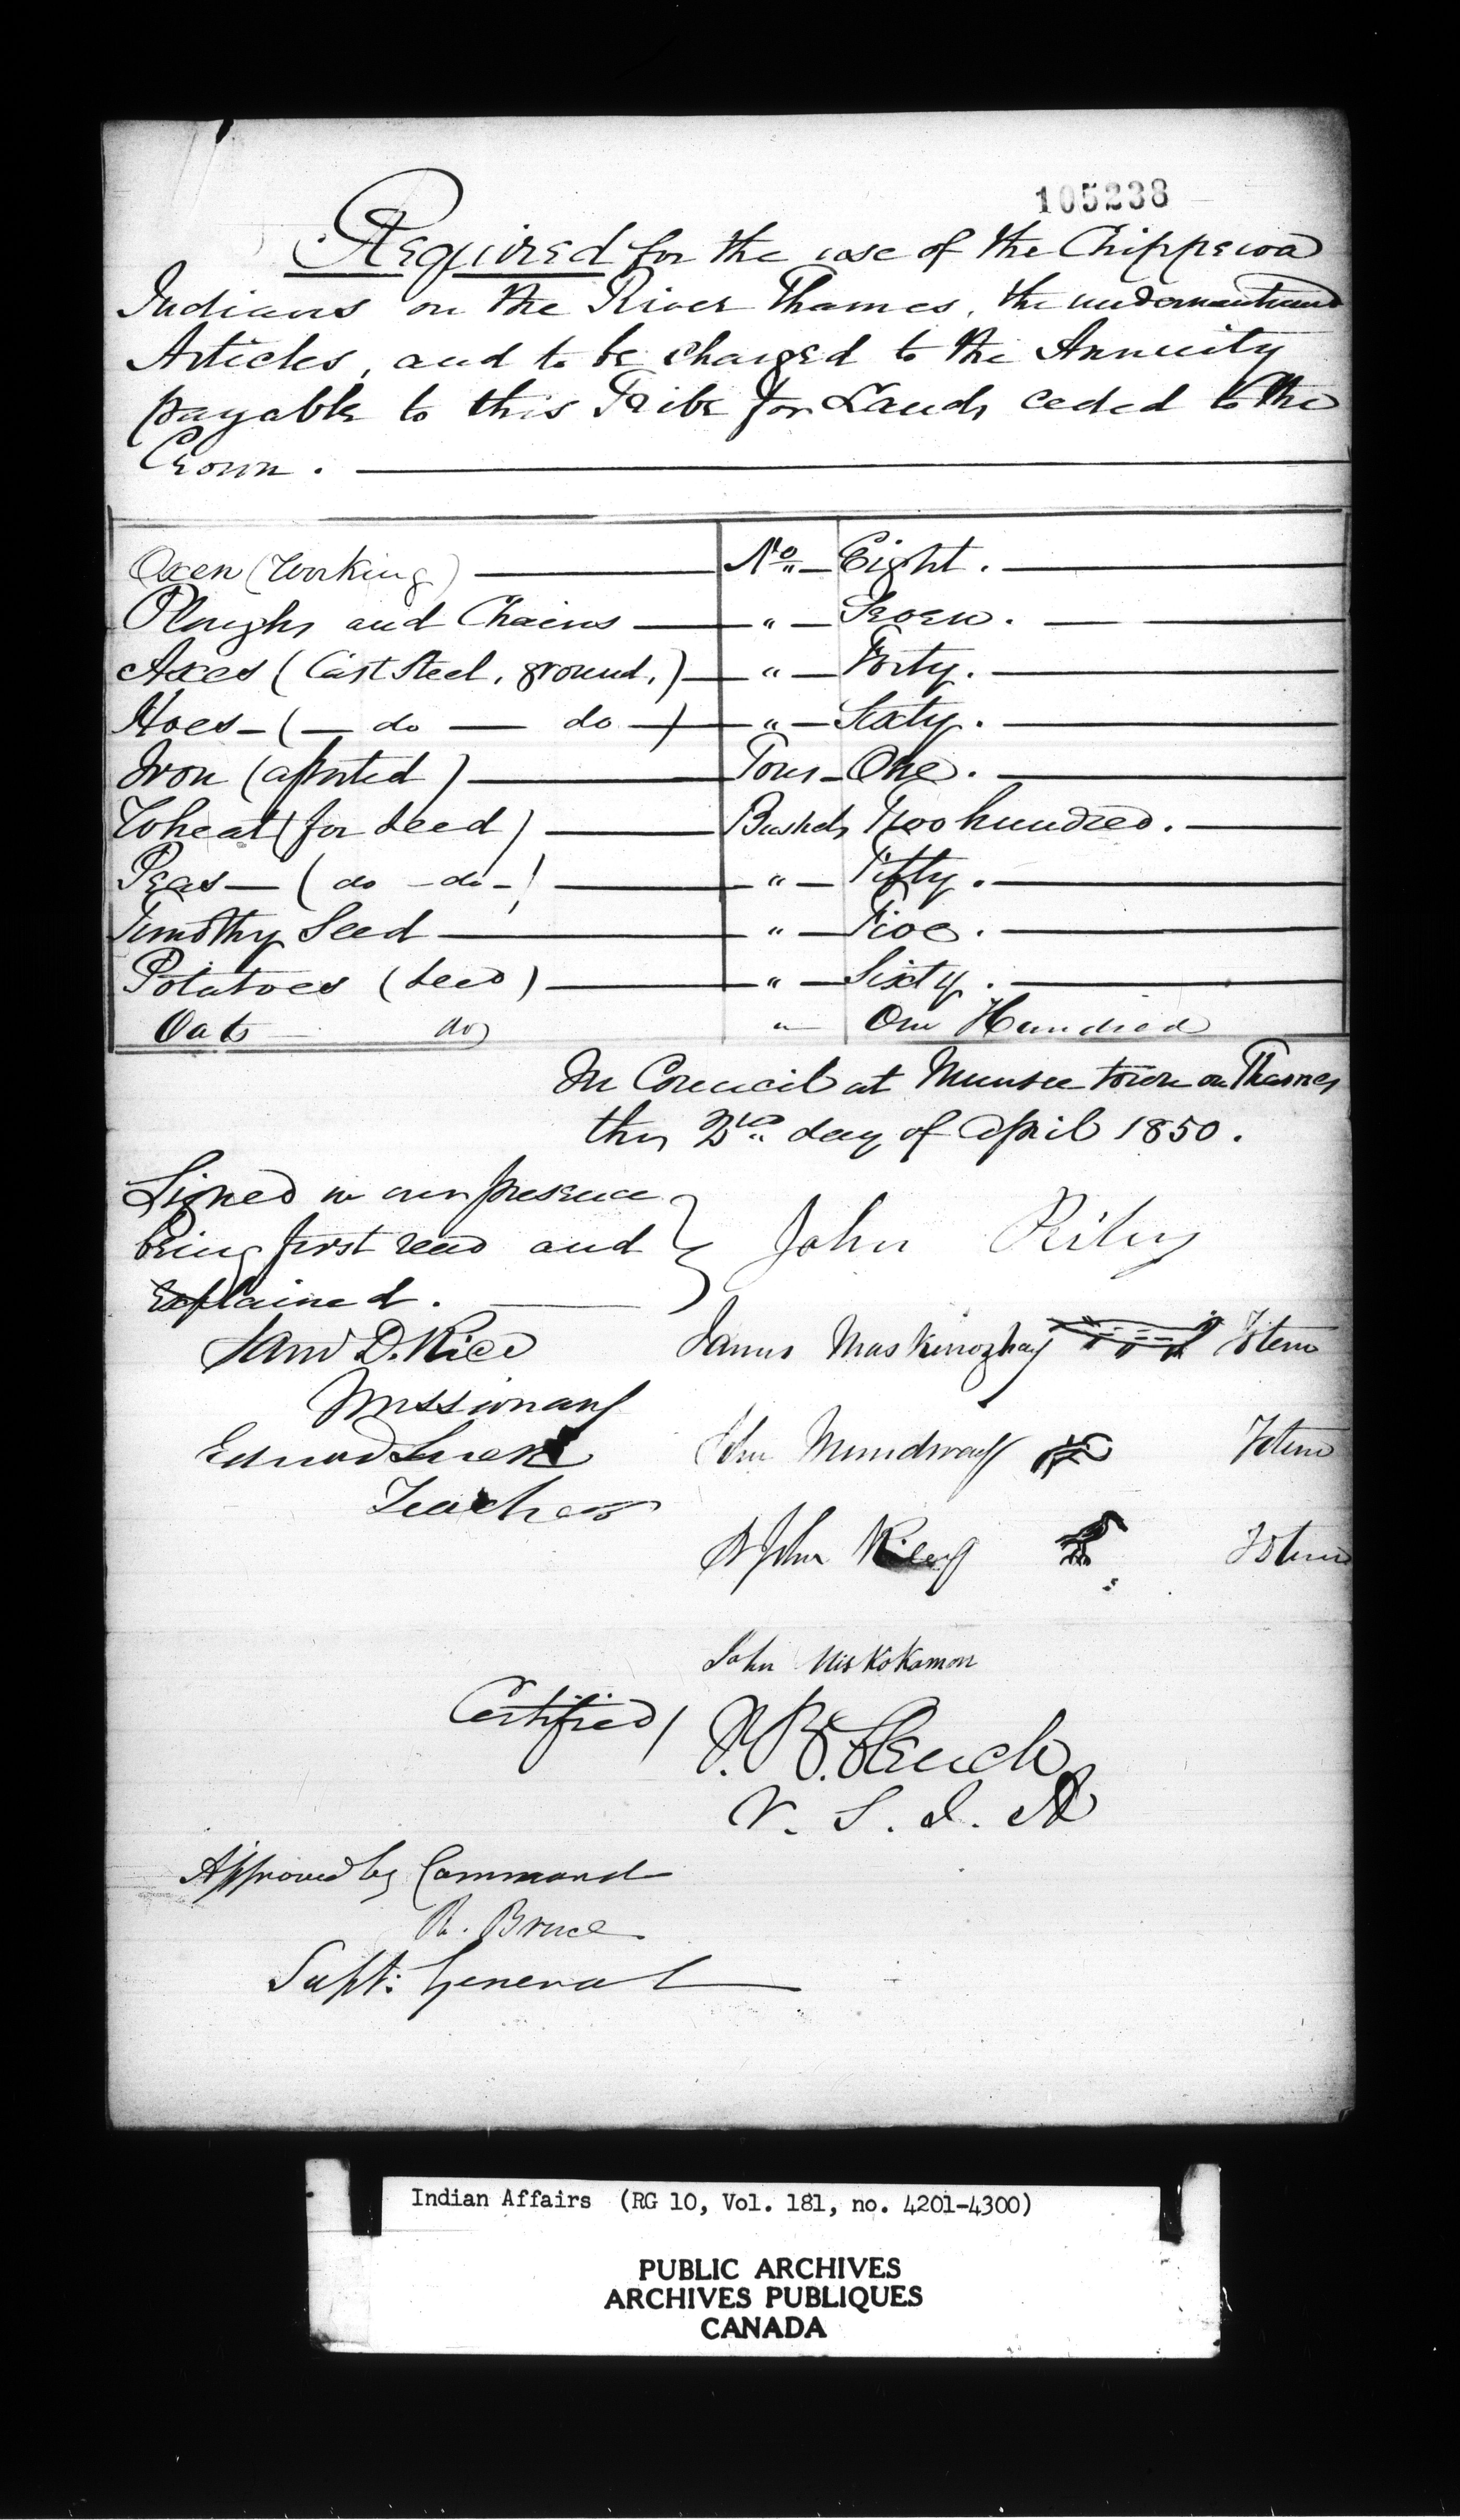 105238
Required for the use of the Chippewa
Indians on the River Thames, the undermentioned
Articles, and to be charged to the Annuity
payable to this Tribe for Lands ceded to the
Crown.
Oxen (Working) No. Eight.
Ploughs and Chains " Seven.
Axes (Cast Steel, ground,) " Forty.
Hoes - ( - do - do - ) " Sixty.
Iron (assorted) Tons - One.
Wheat (for Seed) Bushels Two hundred.
Peas - ( do - do - ) " Fifty.
Timothy Seed " Five.
Potatoes (Seed) " Sixty.
Oats do " One Hundred
In Council at Munsee town on Thames
this 2nd day of April 1850.
Signed in our presence
being first read and
Explained.
John Riley
Saml D. Rice
Missionary
James Maskinozhay Totem
Edward
Teacher
John Mundway Totem
John Riley Totem
John Niskokamon
Certified / J. B. Clench
V. S. I. A
Approved by Command
R. Bruce
Supt: General
Indian Affairs (RG 10, Vol. 181, no. 4201-4300)
PUBLIC ARCHIVES
ARCHIVES PUBLIQUES
CANADA